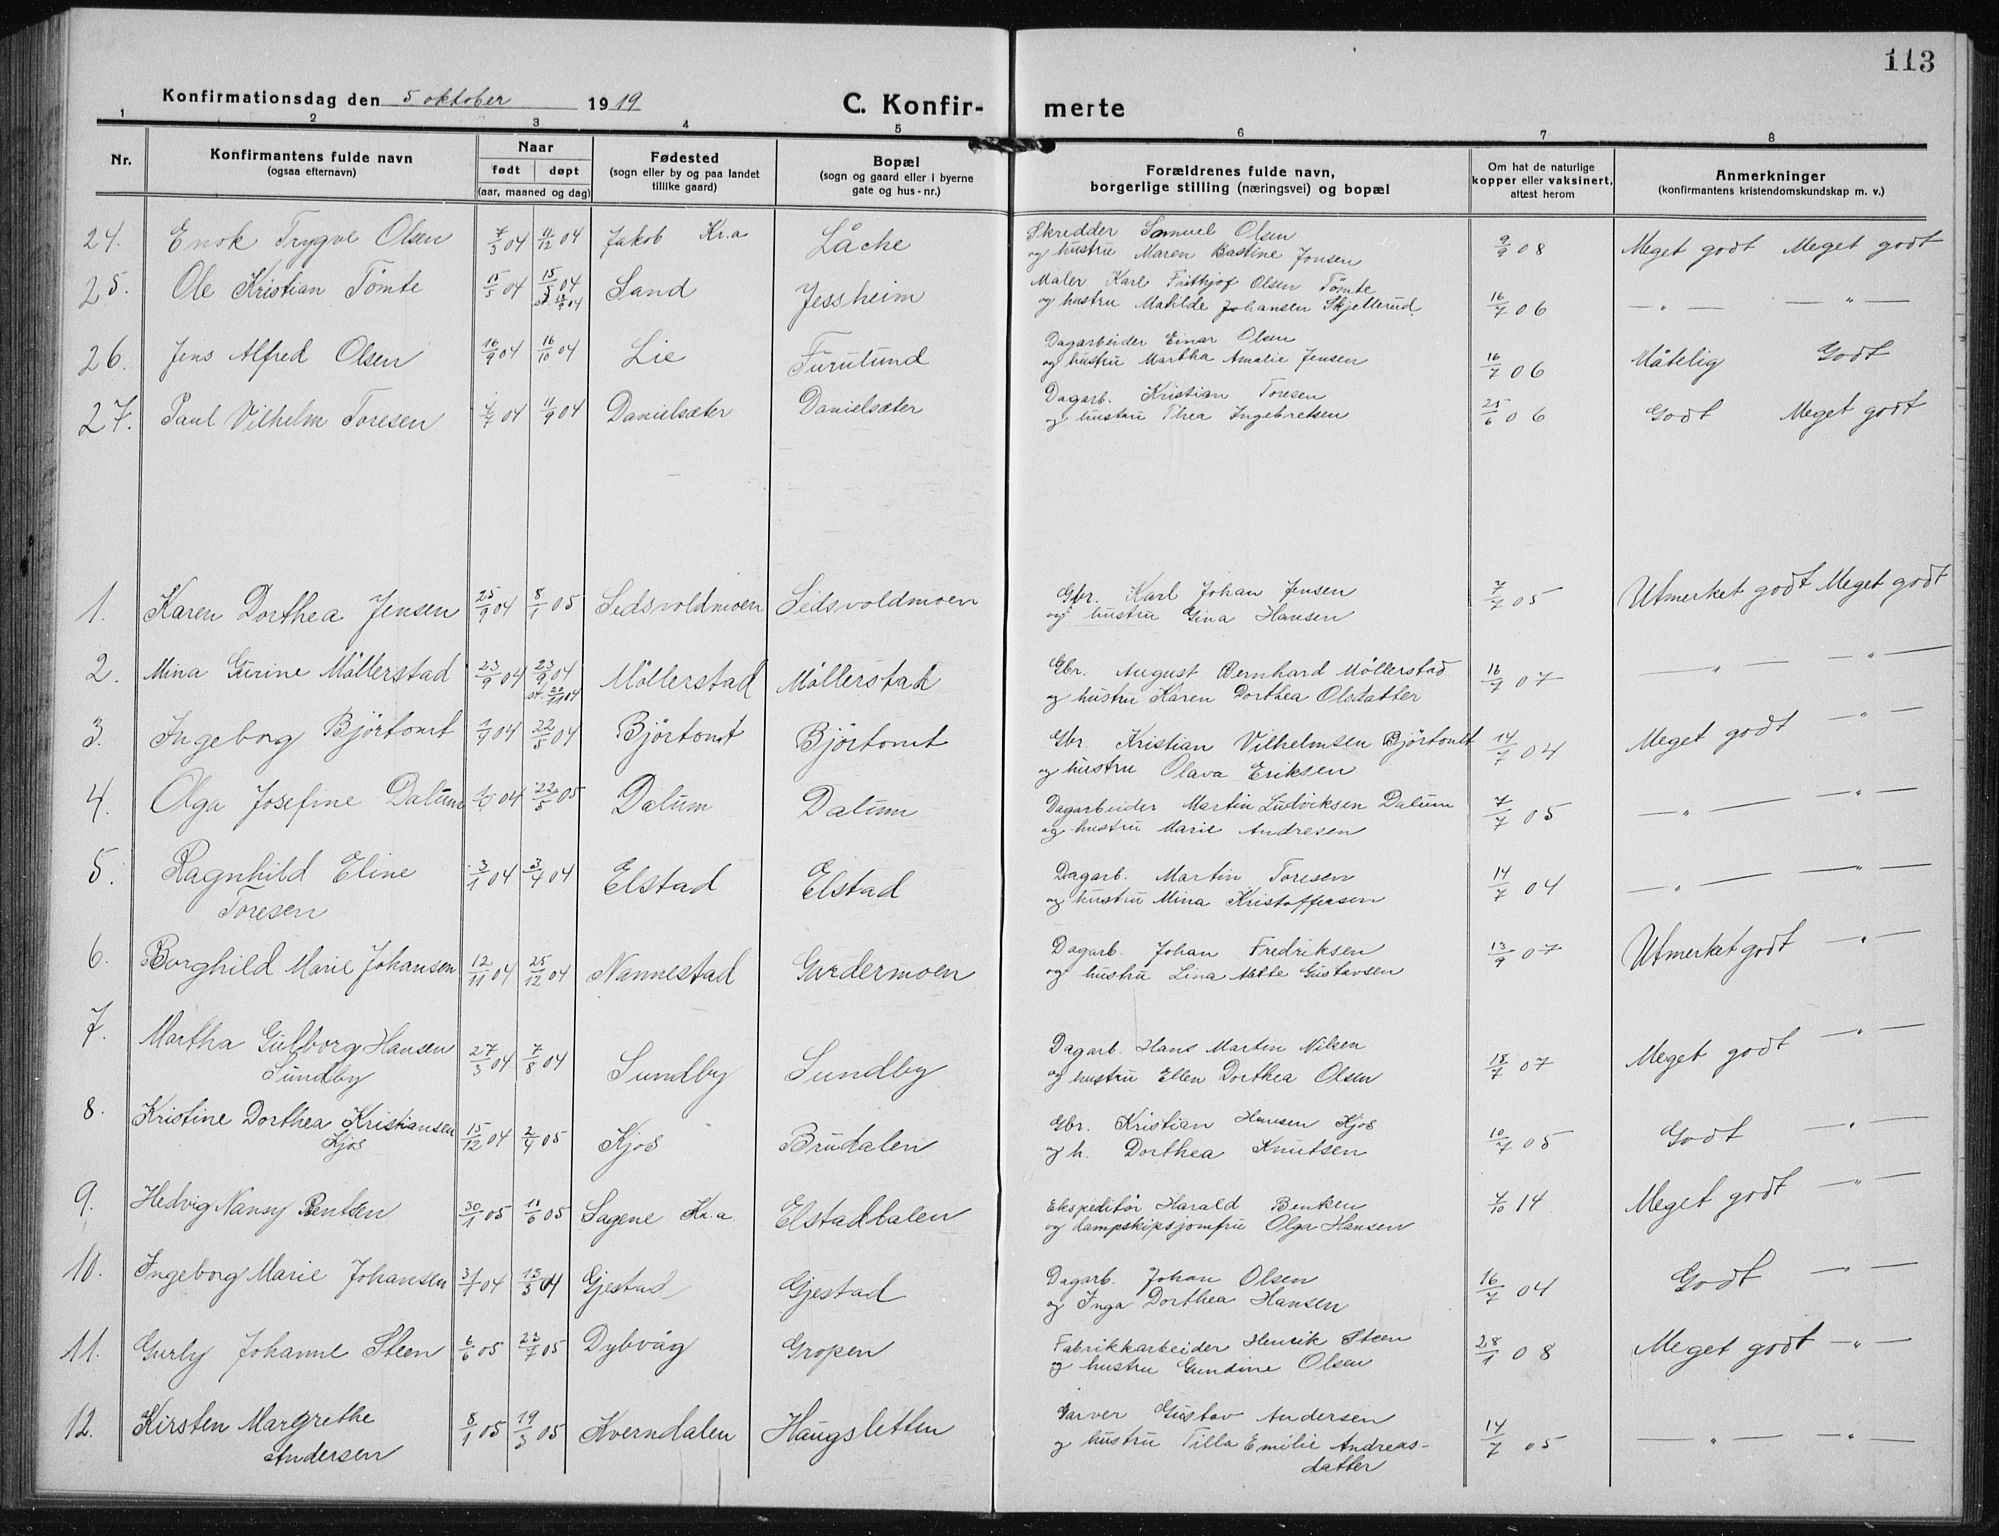 113
Konfirmationsdag den 5 oktober 1919 C. Konfir- merte
1 2 3 4 5 6 7 8
Nr. Konfirmantens fulde navn (ogsaa efternavn) Naar født døpt (aar, maaned og dag) Fødested (sogn eller by og paa landet tillike gaard) Bopæl (sogn og gaard eller i byerne gate og hus-nr.) Forældrenes fulde navn, borgerlige stilling (næringsvei) og bopæl Om hat de naturlige kopper eller vaksinert, attest herom Anmerkninger (konfirmantens kristendomskundskap m. v.)
24. Enok Trygve Olsen 7/3 04 11/12 04 Jakob Kr.a Låche Skredder Samuel Olsen 9/9 08 Meget godt Meget godt
og hustru Maren Bastine Jonsen
25. Ole Kristian Tömte 15/5 04 15/5 04 Sand Jessheim Maler Karl Frithjof Olsen Tömte 16/7 06 — " — — " —
og hustru Matilde Johansen Skjellerud
26. Jens Alfred Olsen 16/9 04 16/10 04 Lie Furulund Dagarbeider Einar Olsen 16/7 06 Måtelig Godt
og hustru Martha Amalie Jensen
27. Paul Vilhelm Toresen 4/7 04 11/9 04 Danielsæter Danielsæter Dagarb. Kristian Toresen 25/6 06 Godt Meget godt
og hustru Thea Ingebretsen
1. Karen Dorthea Jensen 25/9 04 8/1 05 Leidsvoldmoen Leidsvoldmoen Gbr. Karl Johan Jensen 7/7 05 Utmerket godt Meget godt
og hustru Gina Hansen
2. Mina Gurine Möllerstad 23/9 04 23/9 04 Möllerstad Möllerstad Gbr. August Bernhard Möllerstad 16/7 07 — " — — " —
st. 20/11 04 og hustru Karen Dorthea Olsdatter
3. Ingeborg Björtomt 1/4 04 22/5 04 Björtomt Björtomt Gbr. Kristian Vilhelmsen Björtomt 14/7 04 Meget godt — " —
og hustru Olava Eriksen
4. Olga Josefine Dalum 04 22/5 05 Dalum Dalum Dagarbeider Martin Ludviksen Dalum 7/7 05 — " — — " —
og hustru Marie Andresen
5. Ragnhild Eline 3/1 04 3/4 04 Elstad Elstad Dagarb. Martin Toresen 14/7 04 — " — — " —
Toresen og hustru Mina Kristoffersen
6. Borghild Marie Johansen 12/11 04 25/12 04 Nannestad Gardermoen Dagarb. Johan Fredriksen 13/9 07 Utmerket godt — " —
og hustru Lina Mette Gustavsen
7. Martha Gulborg Hansen 27/3 04 7/8 04 Sundby Sundby Dagarb. Hans Martin Nilsen 18/7 07 Meget godt — " —
Sundby og hustru Ellen Dorthea Olsen
8. Kristine Dorthea Kristiansen 15/12 04 2/4 05 Kjos Brudalen Gbr. Kristian Hansen Kjos 10/7 05 Godt — " —
Kjos og h. Dorthea Knutsen
9. Hedvig Nansy Bentsen 30/1 05 18/6 05 Sagene Kr.a Elstaddalen Ekspeditör Harald Benken 7/10 14 Meget godt — " —
og dampskipsjomfru Olga Hansen
10. Ingeborg Marie Johansen 31/1 04 13/3 04 Gjestad Gjestad Dagarb. Johan Olsen 16/7 04 Godt — " —
og Inga Dorthea Hansen
11. Gurly Johanne Steen 6/6 05 22/7 05 Dybvåg Gropen Fabrikkarbeider Henrik Steen 28/1 08 Meget godt — " —
og hustru Gundine Olsen
12. Kirsten Margrethe 8/1 05 19/3 05 Kverndalen Haugsletten Garver Gustav Andersen 14/7 05 — " — — " —
Andersen og hustru Tilla Emilie Andreas-
datter